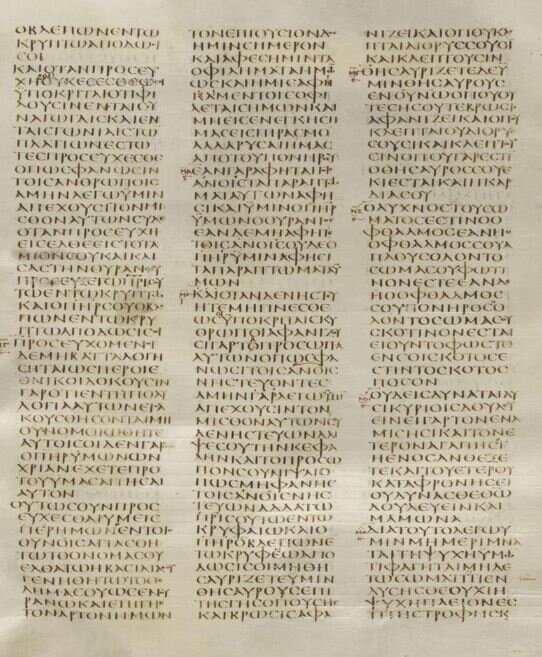 ΟΒΛΕΠΩΝΕΝΤΩ
ΚΡΥΠΤΩΑΠΟΔΩϹΙ
ϹΟΙ
ΚΑΙΟΤΑΝΠΡΟϹΕΥ
ΧΗΟΥΚΕϹΕϹΘΕΩϹΟΙ
ΥΠΟΚΡΙΤΑΙΟΤΙΦΙ
ΛΟΥϹΙΝΕΝΤΑΙϹΥ
ΝΑΓΩΓΑΙϹΚΑΙΕΝ
ΤΑΙϹΓΩΝΙΑΙϹΤΩ
ΠΛΑΤΙΩΝΕϹΤΩ
ΤΕϹΠΡΟϹΕΥΧΕϹΘΕ
ΟΠΩϹΦΑΝΩϹΙΝ
ΤΟΙϹΑΝΘΡΩΠΟΙϹ
ΑΜΗΝΛΕΓΩΥΜΙΝ
ΑΠΕΧΟΥϹΙΤΟΝΜΙ
ϹΘΟΝΑΥΤΩΝϹΥΔΕ
ΟΤΑΝΠΡΟϹΕΥΧΗ
ΕΙϹΕΛΘΕΕΙϹΤΟΤΑ
ΜΙΟΝϹΟΥΚΑΙΚΛΙ
ϹΑϹΤΗΝΘΥΡΑΝϹΟΥ
ΠΡΟϹΕΥΞΕΤΩΠΡΙϹΟΥ
ΤΩΕΝΤΩΚΡΥΠΤΩ
ΚΑΙΟΠΗΡϹΟΥΟΒΛΕ
ΠΩΝΕΝΤΩΚΡΥ
ΠΤΩΑΠΟΔΩϹΕΙϹΟΙ
ΠΡΟϹΕΥΧΟΜΕΝΟΙ
ΔΕΜΗΒΑΤΤΑΛΟΓΗ
ϹΗΤΑΙΩϹΠΕΡΟΙΕ
ΘΝΙΚΟΙΔΟΚΟΥϹΙΝ
ΓΑΡΟΤΙΕΝΤΗΠΟΛΥ
ΛΟΓΙΑΑΥΤΩΝΕΙϹΑ
ΚΟΥϹΘΗϹΟΝΤΑΙΜΗ
ΟΥΝΟΜΟΙΩΘΗΤΕ
ΑΥΤΟΙϹΟΙΔΕΝΓΑΡ
ΟΠΗΡΥΜΩΝΩΝ
ΧΡΙΑΝΕΧΕΤΕΠΡΟ
ΤΟΥΥΜΑϹΑΙΤΗϹΑΙ
ΑΥΤΟΝ
ΟΥΤΩϹΟΥΝΠΡΟϹ
ΕΥΧΕϹΘΑΙΥΜΕΙϹ
ΠΕΡΗΜΩΝΟΕΝΤΟΙϹ
ΟΥΝΟΙϹΑΓΙΑϹΘΗ
ΤΩΤΟΟΝΟΜΑϹΟΥ
ΕΛΘΑΤΩΗΒΑϹΙΛΙΑϹΟΥ
ΓΕΝΗΘΗΤΩΤΟΘΕ
ΛΗΜΑϹΟΥΩϹΕΝΟΥ
ΡΑΝΩΚΑΙΕΠΙΓΗϹ
ΤΟΝΑΡΤΟΝΗΜΩΝ
ΤΟΝΕΠΙΟΥϹΙΟΝΔΟϹ
ΗΜΙΝϹΗΜΕΡΟΝ
ΚΑΙΑΦΕϹΗΜΙΝΤΑ
ΟΦΙΛΗΜΑΤΑΗΜΩ
ΩϹΚΑΙΗΜΙϹΑΦΗ
ΚΑΜΕΝΤΟΙϹΟΦΙ
ΛΕΤΑΙϹΗΜΩΝΚΑΙ
ΜΗΕΙϹΕΝΕΓΚΗϹΗ
ΜΑϹΕΙϹΠΙΡΑϹΜΟ
ΑΛΛΑΡΥϹΑΙΗΜΑϹ
ΑΠΟΤΟΥΠΟΝΗΡΟΥ
ΕΑΝΓΑΡΑΦΗΤΑΙΤΟΙϹ
ΑΝΟΙϹΤΑΠΑΡΑΠΤΩ
ΜΑΤΑΑΥΤΩΝΑΦΗ
ϹΙΚΑΙΥΜΙΝΟΠΗΡ
ΥΜΩΝΟΟΥΡΑΝΙΟϹ
ΕΑΝΔΕΜΗΑΦΗΤΕ
ΤΟΙϹΑΝΟΙϹΟΥΔΕΟ
ΠΗΡΥΜΙΝΑΦΗϹΙ
ΤΑΠΑΡΑΠΤΩΜΑΤΑΥ
ΜΩΝ
ΚΑΙΟΤΑΝΔΕΝΗϹΤΕΥ
ΗΤΕΜΗΓΙΝΕϹΘΕ
ΩϹΟΙΥΠΟΚΡΙΤΑΙϹΚΥ
ΘΡΩΠΟΙΑΦΑΝΙΖΟΥ
ϹΙΓΑΡΤΟΠΡΟϹΩΠΟ
ΑΥΤΩΝΟΠΩϹΦΑ
ΝΩϹΙΤΟΙϹΑΝΟΙϹ
ΝΗϹΤΕΥΟΝΤΕϹ
ΑΜΗΝΓΑΡΛΕΓΩΥΜΙ
ΑΠΕΧΟΥϹΙΝΤΟΝ
ΜΙϹΘΟΝΑΥΤΩΝϹΥ
ΔΕΝΗϹΤΕΥΩΝΑΛΙ
ΨΕϹΟΥΤΗΝΚΕΦΑ
ΛΗΝΚΑΙΤΟΠΡΟϹΩ
ΠΟΝϹΟΥΝΙΨΑΙΟ
ΠΩϹΜΗΦΑΝΗϹ
ΤΟΙϹΑΝΟΙϹΝΗϹ
ΤΕΥΩΝΑΛΛΑΤΩ
ΠΡΙϹΟΥΤΩΕΝΤΩ
ΚΡΥΦΑΙΩΚΑΙΟ
ΠΗΡΟΒΛΕΠΩΝΕ
ΤΩΚΡΥΦΑΙΩΑΠΟ
ΔΩϹΙϹΟΙΜΗΘΗ
ϹΑΥΡΙΖΕΤΕΥΜΙΝ
ΘΗϹΑΥΡΟΥϹΕΠΙ
ΤΗϹΓΗϹΟΠΟΥϹΗϹ
ΚΑΙΒΡΩϹΙϹΑΦΑ
ΝΙΖΕΙΚΑΙΟΠΟΥΚΛΕ
ΠΤΑΙΔΙΟΡΥϹϹΟΥϹΙ
ΚΑΙΚΛΕΠΤΟΥϹΙΝ
ΘΗϹΑΥΡΙΖΕΤΕΔΕΥ
ΜΙΝΘΗϹΑΥΡΟΥϹ
ΕΝΟΥΝΩΟΠΟΥΟΥ
ΤΕϹΗϹΟΥΤΕΒΡΩϹΙϹ
ΑΦΑΝΙΖΕΙΚΑΙΟΠΟΥ
ΚΛΕΠΤΑΙΟΥΔΙΟΡΥϹ
ϹΟΥϹΙΚΑΙΚΛΕΠΤΟΥ
ϹΙΝΟΠΟΥΓΑΡΕϹΤΙ
ΟΘΗϹΑΥΡΟϹϹΟΥΕ
ΚΙΕϹΤΑΙΚΑΙΗΚΑΡ
ΔΙΑϹΟΥ
ΟΛΥΧΝΟϹΤΟΥϹΩ
ΜΑΤΟϹΕϹΤΙΝΟΟ
ΦΘΑΛΜΟϹΕΑΝΗΟ
ΟΦΘΑΛΜΟϹϹΟΥΑ
ΠΛΟΥϹΟΛΟΝΤΟ
ϹΩΜΑϹΟΥΦΩΤΙ
ΝΟΝΕϹΤΕΕΑΝΔΕ
ΗΟΟΦΘΑΛΜΟϹ
ϹΟΥΠΟΝΗΡΟϹΟ
ΛΟΝΤΟϹΩΜΑϹΟΥ
ϹΚΟΤΙΝΟΝΕϹΤΑΙ
ΕΙΟΥΝΤΟΦΩϹΤΟ
ΕΝϹΟΙϹΚΟΤΟϹΕ
ϹΤΙΝΤΟϹΚΟΤΟϹ
ΠΟϹΟΝ
ΟΥΔΕΙϹΔΥΝΑΤΑΙΔΥ
ϹΙΚΥΡΙΟΙϹΔΟΥΛΕΥ
ΕΙΝΗΓΑΡΤΟΝΕΝΑ
ΜΙϹΗϹΙΚΑΙΤΟΝΕ
ΤΕΡΟΝΑΓΑΠΗϹΙ
ΗΕΝΟϹΑΝΘΕΞΕ
ΤΕΚΑΙΤΟΥΕΤΕΡΟΥ
ΚΑΤΑΦΡΟΝΗϹΕΙ
ΟΥΔΥΝΑϹΘΕΘΩ
ΔΟΥΛΕΥΕΙΝΚΑΙ
ΜΑΜΩΝΑ
ΔΙΑΤΟΥΤΟΛΕΓΩΥ
ΜΙΝΜΗΜΕΡΙΜΝΑ
ΤΑΙΤΗΨΥΧΗΥΜΩ
ΤΙΦΑΓΗΤΑΙΜΗΔΕ
ΤΩϹΩΜΑΤΙΤΙΕΝ
ΔΥϹΗϹΘΕΟΥΧΙΗ
ΨΥΧΗΠΛΕΙΟΝΕϹ
ΤΙΤΗϹΤΡΟΦΗϹΚ